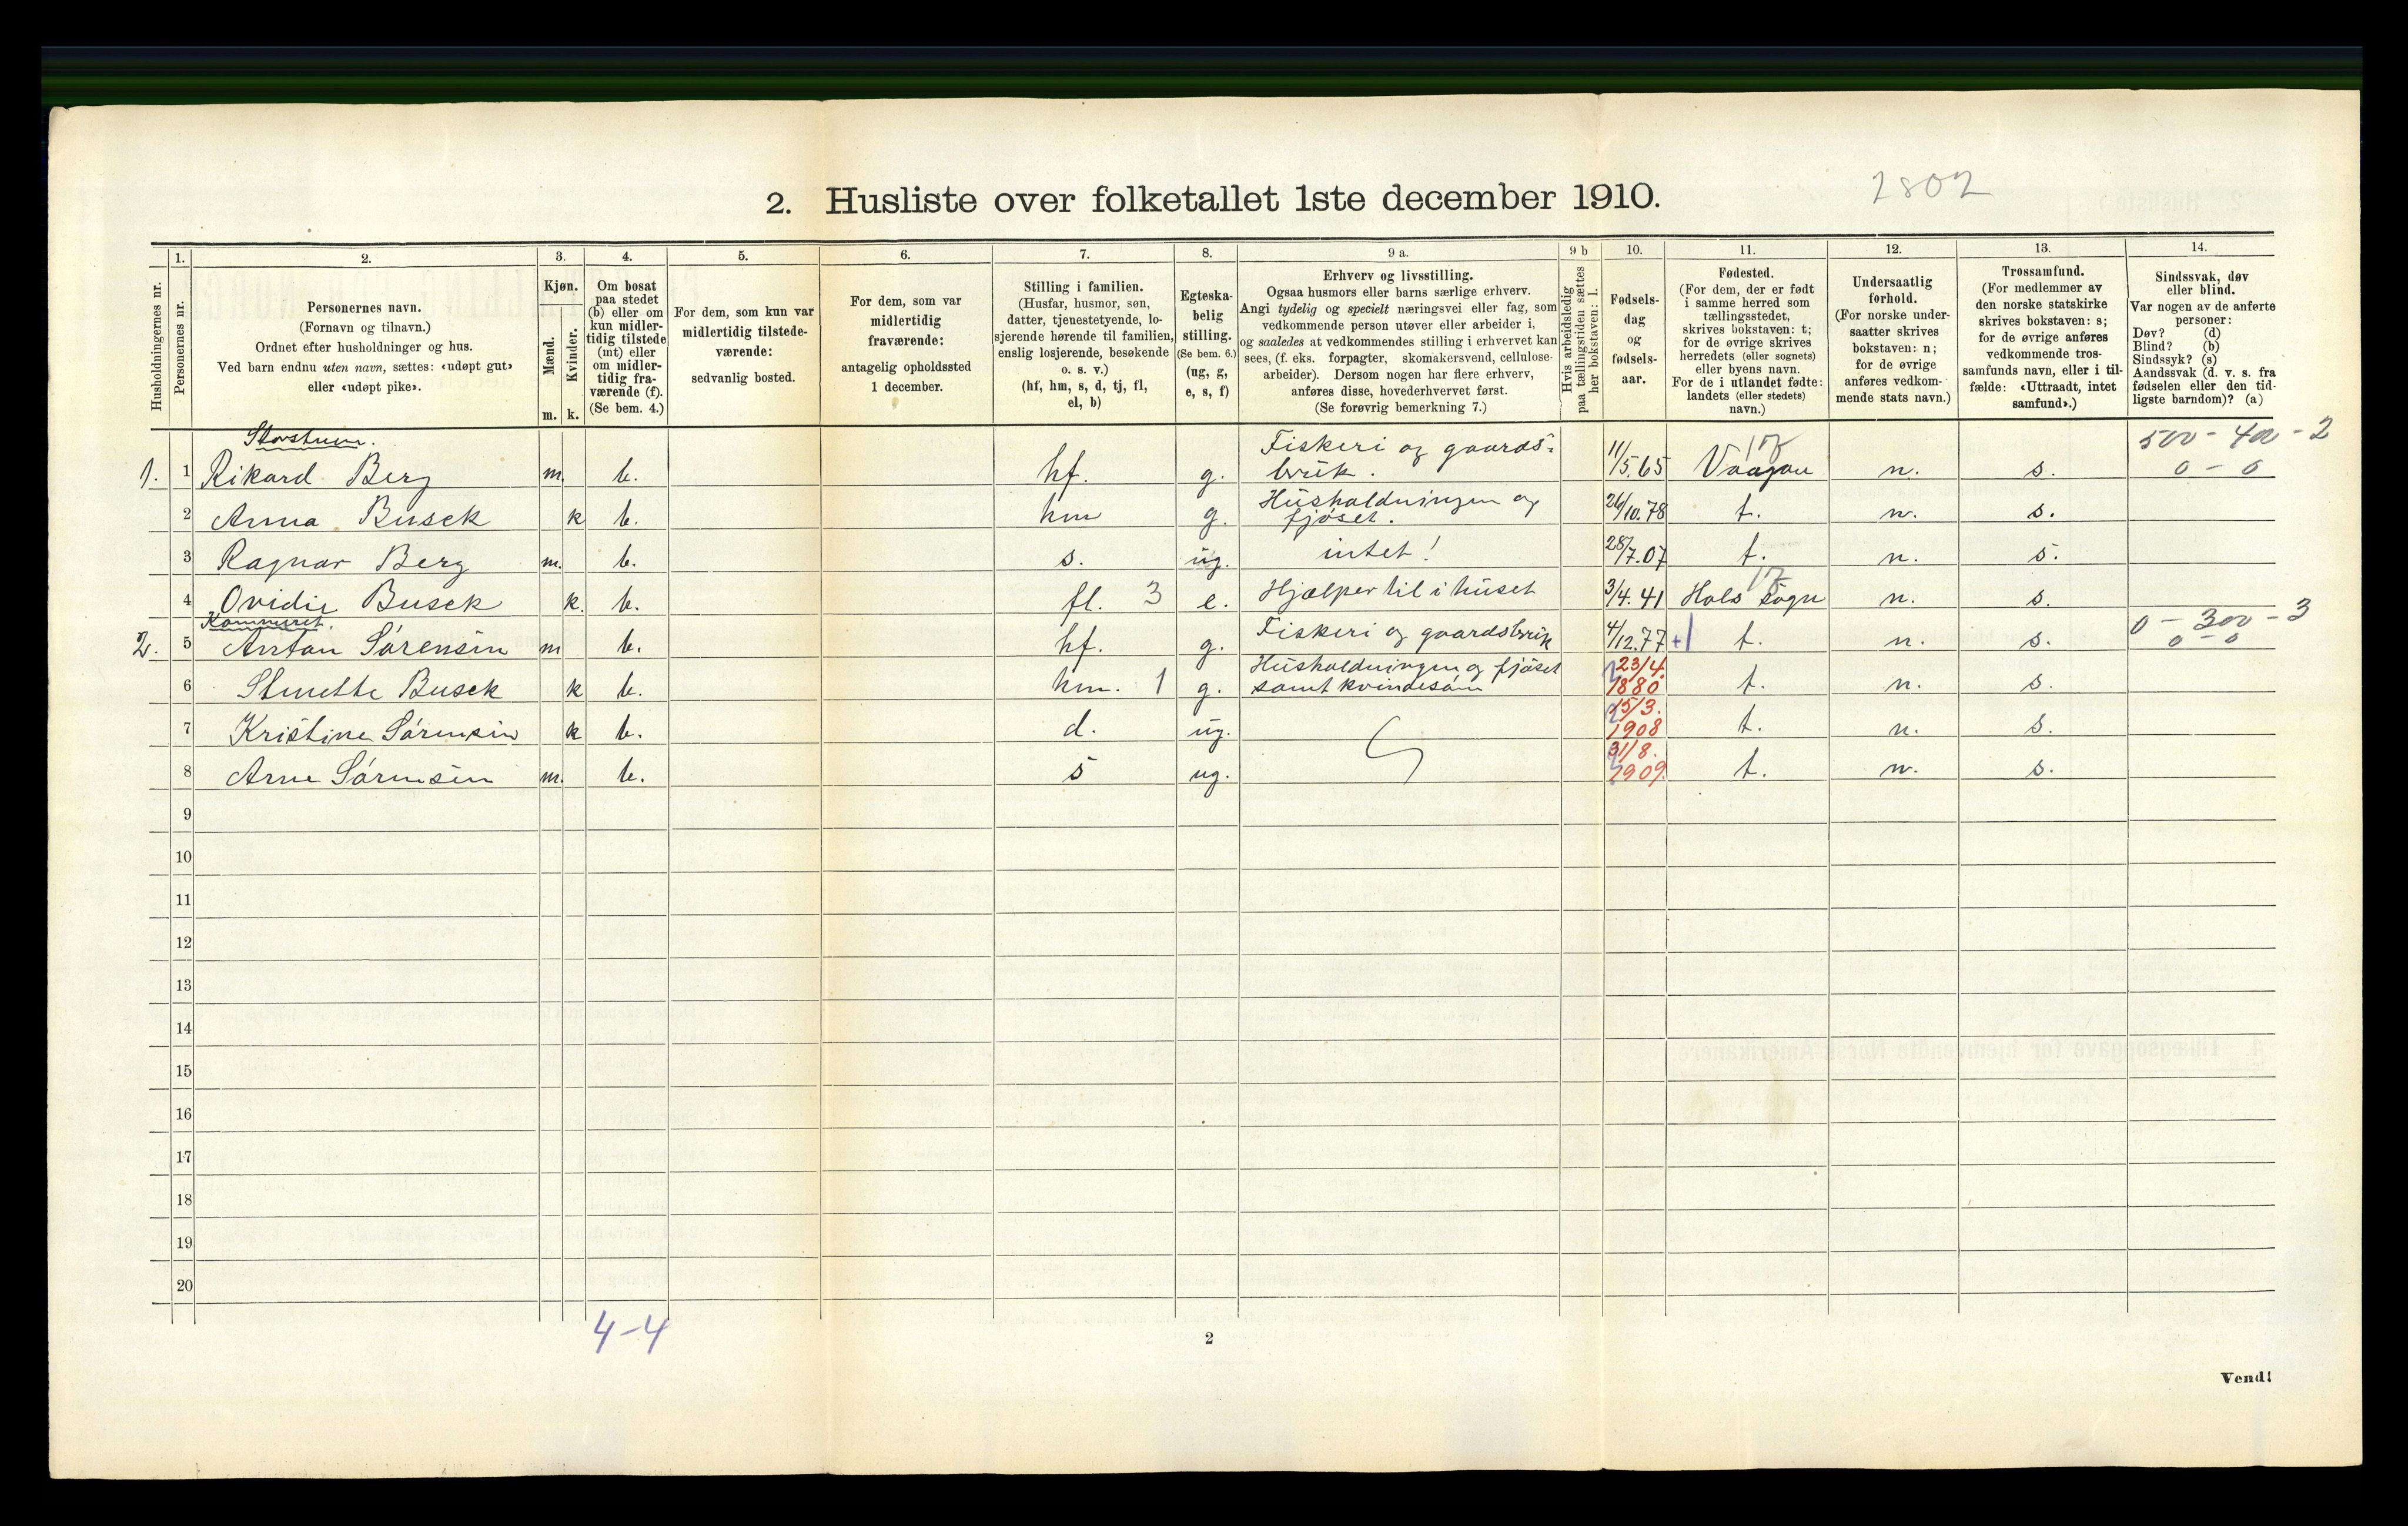 2. Husliste over folketallet 1ste december 1910.
2802
Husholdningernes nr.
1. Personernes nr.
2. Personernes navn.
(Fornavn og tilnavn.)
Ordnet efter husholdninger og hus.
Ved barn endnu uten navn, sættes: «udøpt gut»
eller «udøpt pike».
3. Kjøn.
Mænd. m.
Kvinder. k.
4. Om bosat
paa stedet
(b) eller om
kun midler-
tidig tilstede
(mt) eller
om midler-
tidig fra-
værende (f).
(Se bem. 4.)
5. For dem, som kun var
midlertidig tilstede-
værende:
sedvanlig bosted.
6. For dem, som var
midlertidig
fraværende:
antagelig opholdssted
1 december.
7. Stilling i familien.
(Husfar, husmor, søn,
datter, tjenestetyende, lo-
sjerende hørende til familien,
enslig losjerende, besøkende
o. s. v.)
(hf, hm, s, d, tj, fl,
el, b)
8. Egteska-
belig
stilling.
(Se bem. 6.)
(ug, g,
e, s, f)
9 a. Erhverv og livsstilling.
Ogsaa husmors eller barns særlige erhverv.
Angi tydelig og specielt næringsvei eller fag, som
vedkommende person utøver eller arbeider i,
og saaledes at vedkommendes stilling i erhvervet kan
sees, (f. eks. forpagter, skomakersvend, cellulose-
arbeider). Dersom nogen har flere erhverv,
anføres disse, hovederhvervet først.
(Se forøvrig bemerkning 7.)
9 b Hvis arbeidsledig
paa tællingstiden sættes
her bokstaven: l.
10. Fødsels-
dag
og
fødsels-
aar.
11. Fødested.
(For dem, der er født
i samme herred som
tællingsstedet,
skrives bokstaven: t;
for de øvrige skrives
herredets (eller sognets)
eller byens navn.
For de i utlandet fødte:
landets (eller stedets)
navn.)
12. Undersaatlig
forhold.
(For norske under-
saatter skrives
bokstaven: n;
for de øvrige
anføres vedkom-
mende stats navn.)
13. Trossamfund.
(For medlemmer av
den norske statskirke
skrives bokstaven: s;
for de øvrige anføres
vedkommende tros-
samfunds navn, eller i til-
fælde: «Uttraadt, intet
samfund».)
14. Sindssvak, døv
eller blind.
Var nogen av de anførte
personer:
Døv? (d)
Blind? (b)
Sindssyk? (s)
Aandssvak (d. v. s. fra
fødselen eller den tid-
ligste barndom)? (a)
Storstuen.
1. 1 Rikard Berg m. b. hf. g. Fiskeri og gaards-
bruk. 11/5.65 Vaagan 17 n. s. 500 - 400 - 2
0 - 0
2 Anna Busek k b. hm g. Husholdningen og
fjøset. 26/10.78 t. n. s.
3 Ragnar Berg m. b. s. ug. intet! 28/7.07 t. n. s.
4 Ovidie Busek k. b. fl. 3 e. Hjælper til i huset 3/4. 41 Hols sogn 17 n. s.
Kammeret.
2. 5 Antan Sørensen m b. hf. g. Fiskeri og gaardsbruk 4/12.77 +1 t. n. s. 0 - 300 - 3
0 - 0
6 Busek k b. hm. 1 g. Husholdningen og fjøset
samt kvindesøm 23/4.
1880 t. n. s.
7 Kristine Sørensen k b. d. ug. 15/3.
1908 t. n. s.
8 Arne Sørensen m. b. s ug. 31/8.
1909. t. n. s.
9
10
11
12
13
14
15
16
17
18
19
20
4-4
2
Vend!